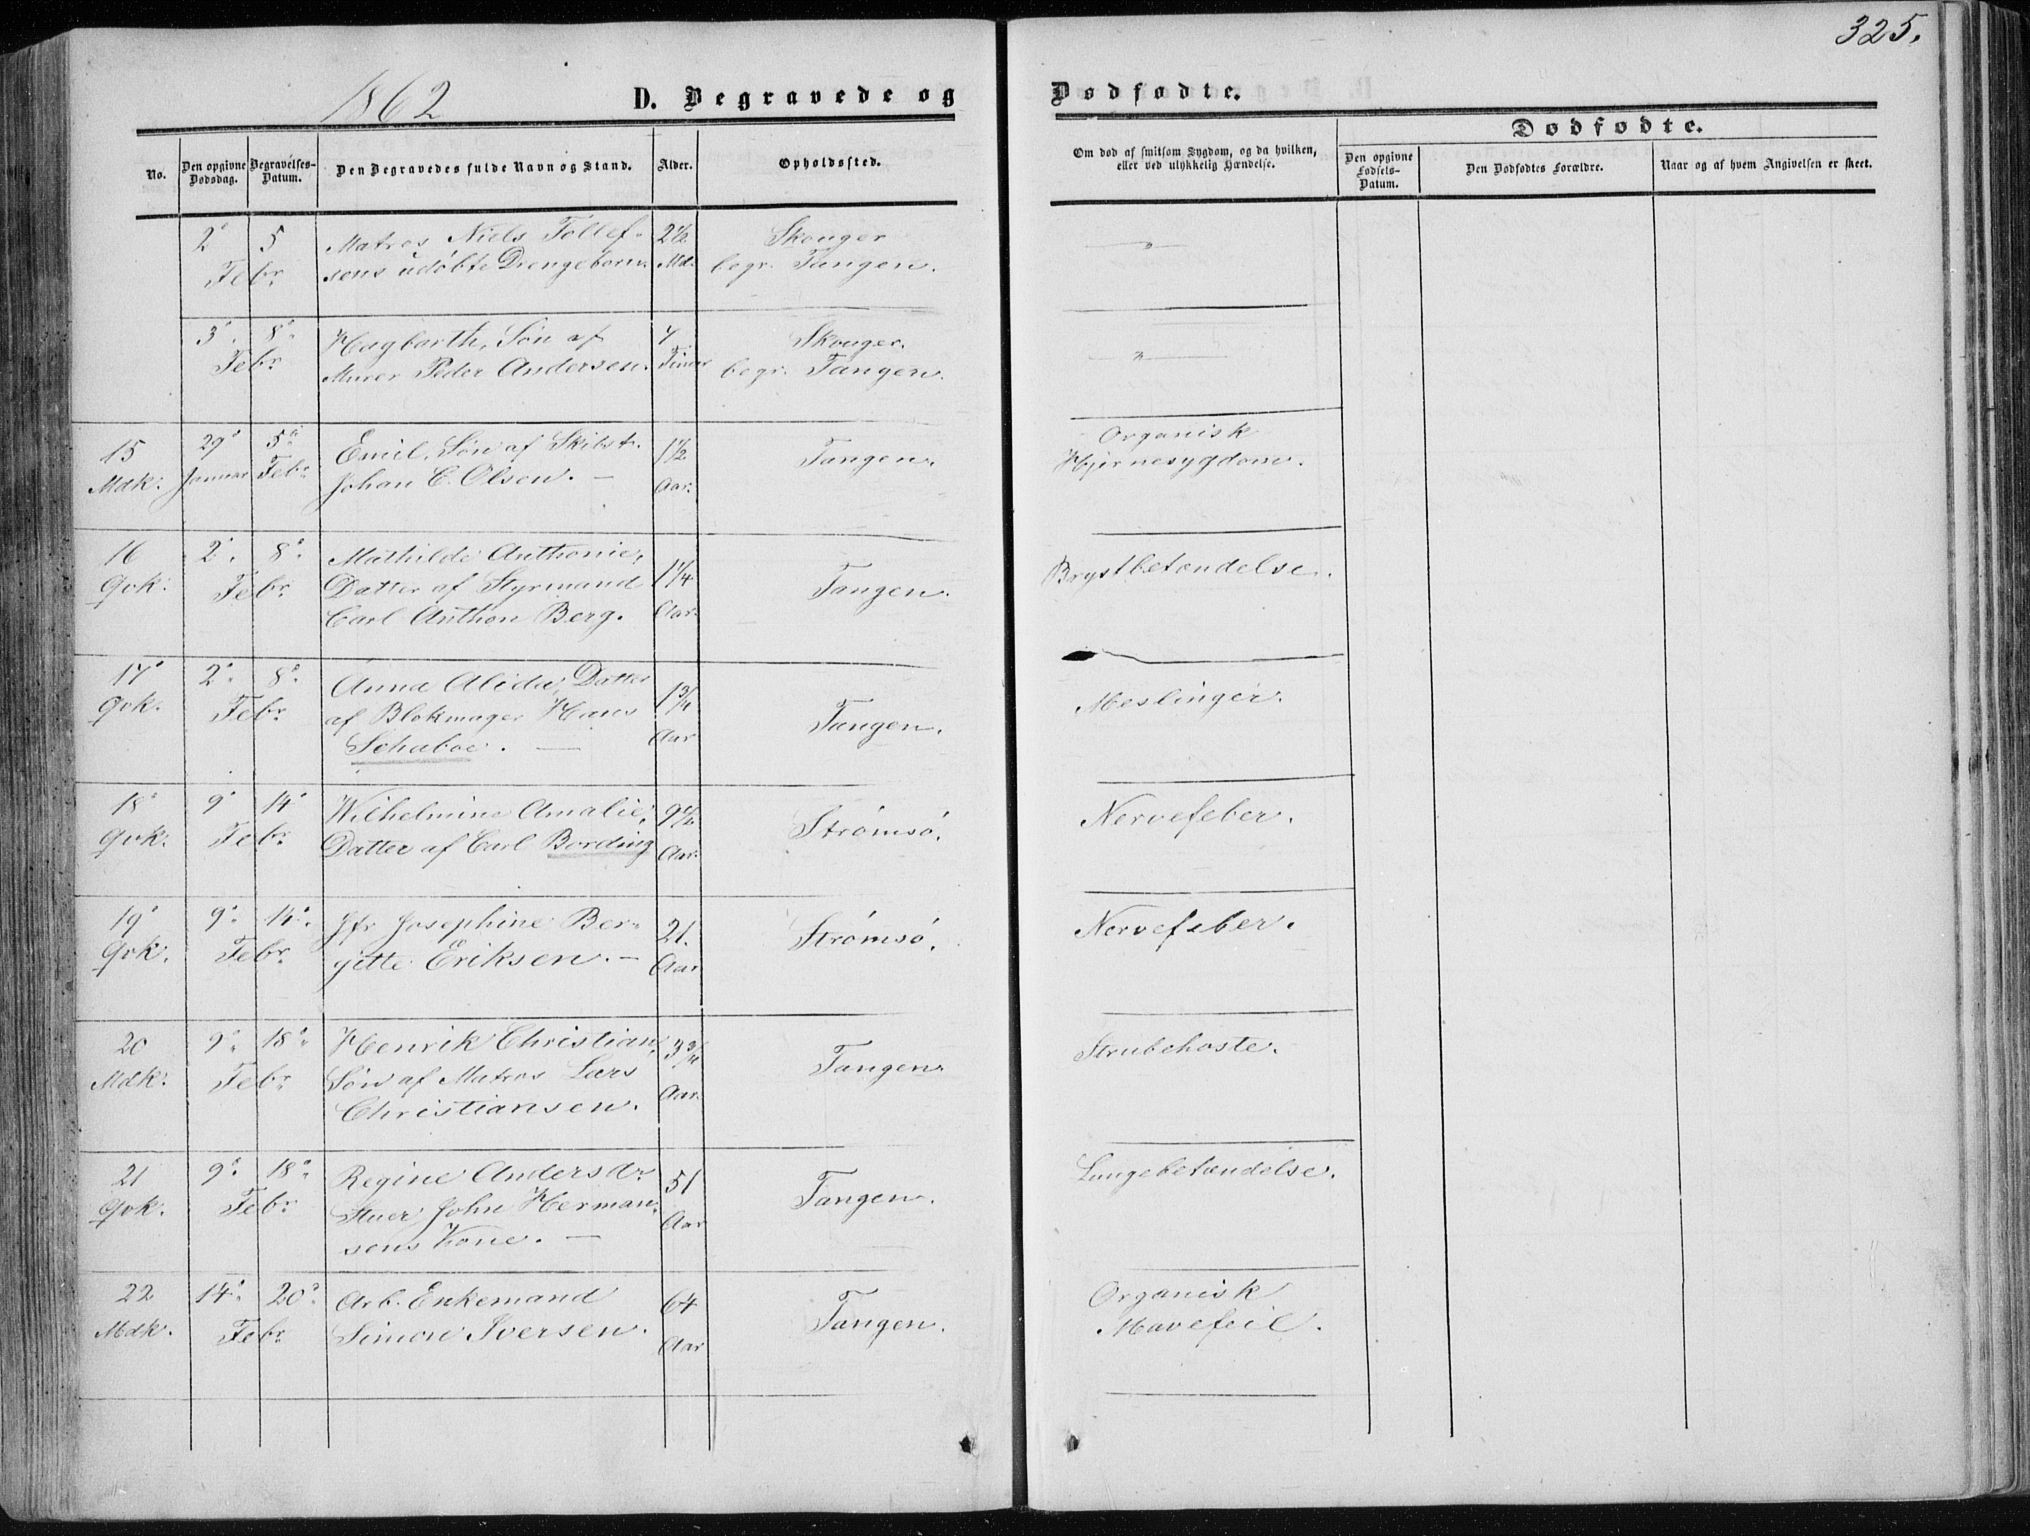 325.
1862
D. Begravede og Dødfødte.
No.
Den opgivne Dødsdag.
Begravelses-Datum.
Den Begravedes fulde Navn og Stand.
Alder.
Opholdssted.
Om død af smitsom Sygdom, og da hvilken, eller ved ulykkelig Hændelse.
Dødfødte.
Den opgivne Fødsels-Datum.
Den Dødfødtes Forældre.
Naar og af hvem Angivelsen er skeet.
2 5 Matros Niels Tollef- 2½ Skouger
Febr. sens udøbte Drengebarn. Md. begr. Tangen.
3 8 Hagbarth, Søn af 4 Skouger.
Febr. Murer Peder Andersen. Timer begr. Tangen.
15 29 5 Emil, Søn af Skibst. 1½ Tangen. Organisk
Mdk. Januar Febr. Johan C. Olsen. Aar. Hjernesygdom.
16 2 8 Mathilde Anthonie, 1¼ Tangen. Brystbetændelse.
Qvk. Febr. Datter af Styrmand
Carl Anthon Berg. Aar.
17 2 8 Anna Alida, Datter 1¾ Tangen. Meslinger.
Qvk. Febr. af Blokmager Hans
Schaboe. Aar
18 9 14 Wilhelmine Amalie, 9½ Strømsø. Nervefeber.
Qvk. Febr. Datter af Carl Bording Aar.
19 9 14 Jfr Josephine Ber- 21. Strømsø. Nervefeber.
Qvk. Febr. gitte Eriksen. Aar
20 9 18 Henrik Christian, 3¾ Tangen. Strubehoste.
Mdk. Febr. Søn af Matros Lars Aar.
Christiansen.
21 9 18 Regine Andersdr 51 Tangen. Lungebetændelse.
Qvk. Febr. Stuer John Herman-
sens Kone. Aar
22 14 20 Arb. Enkemand 64 Tangen. Organisk
Mdk. Febr. Simon Iversen. Aar Mavefeil.